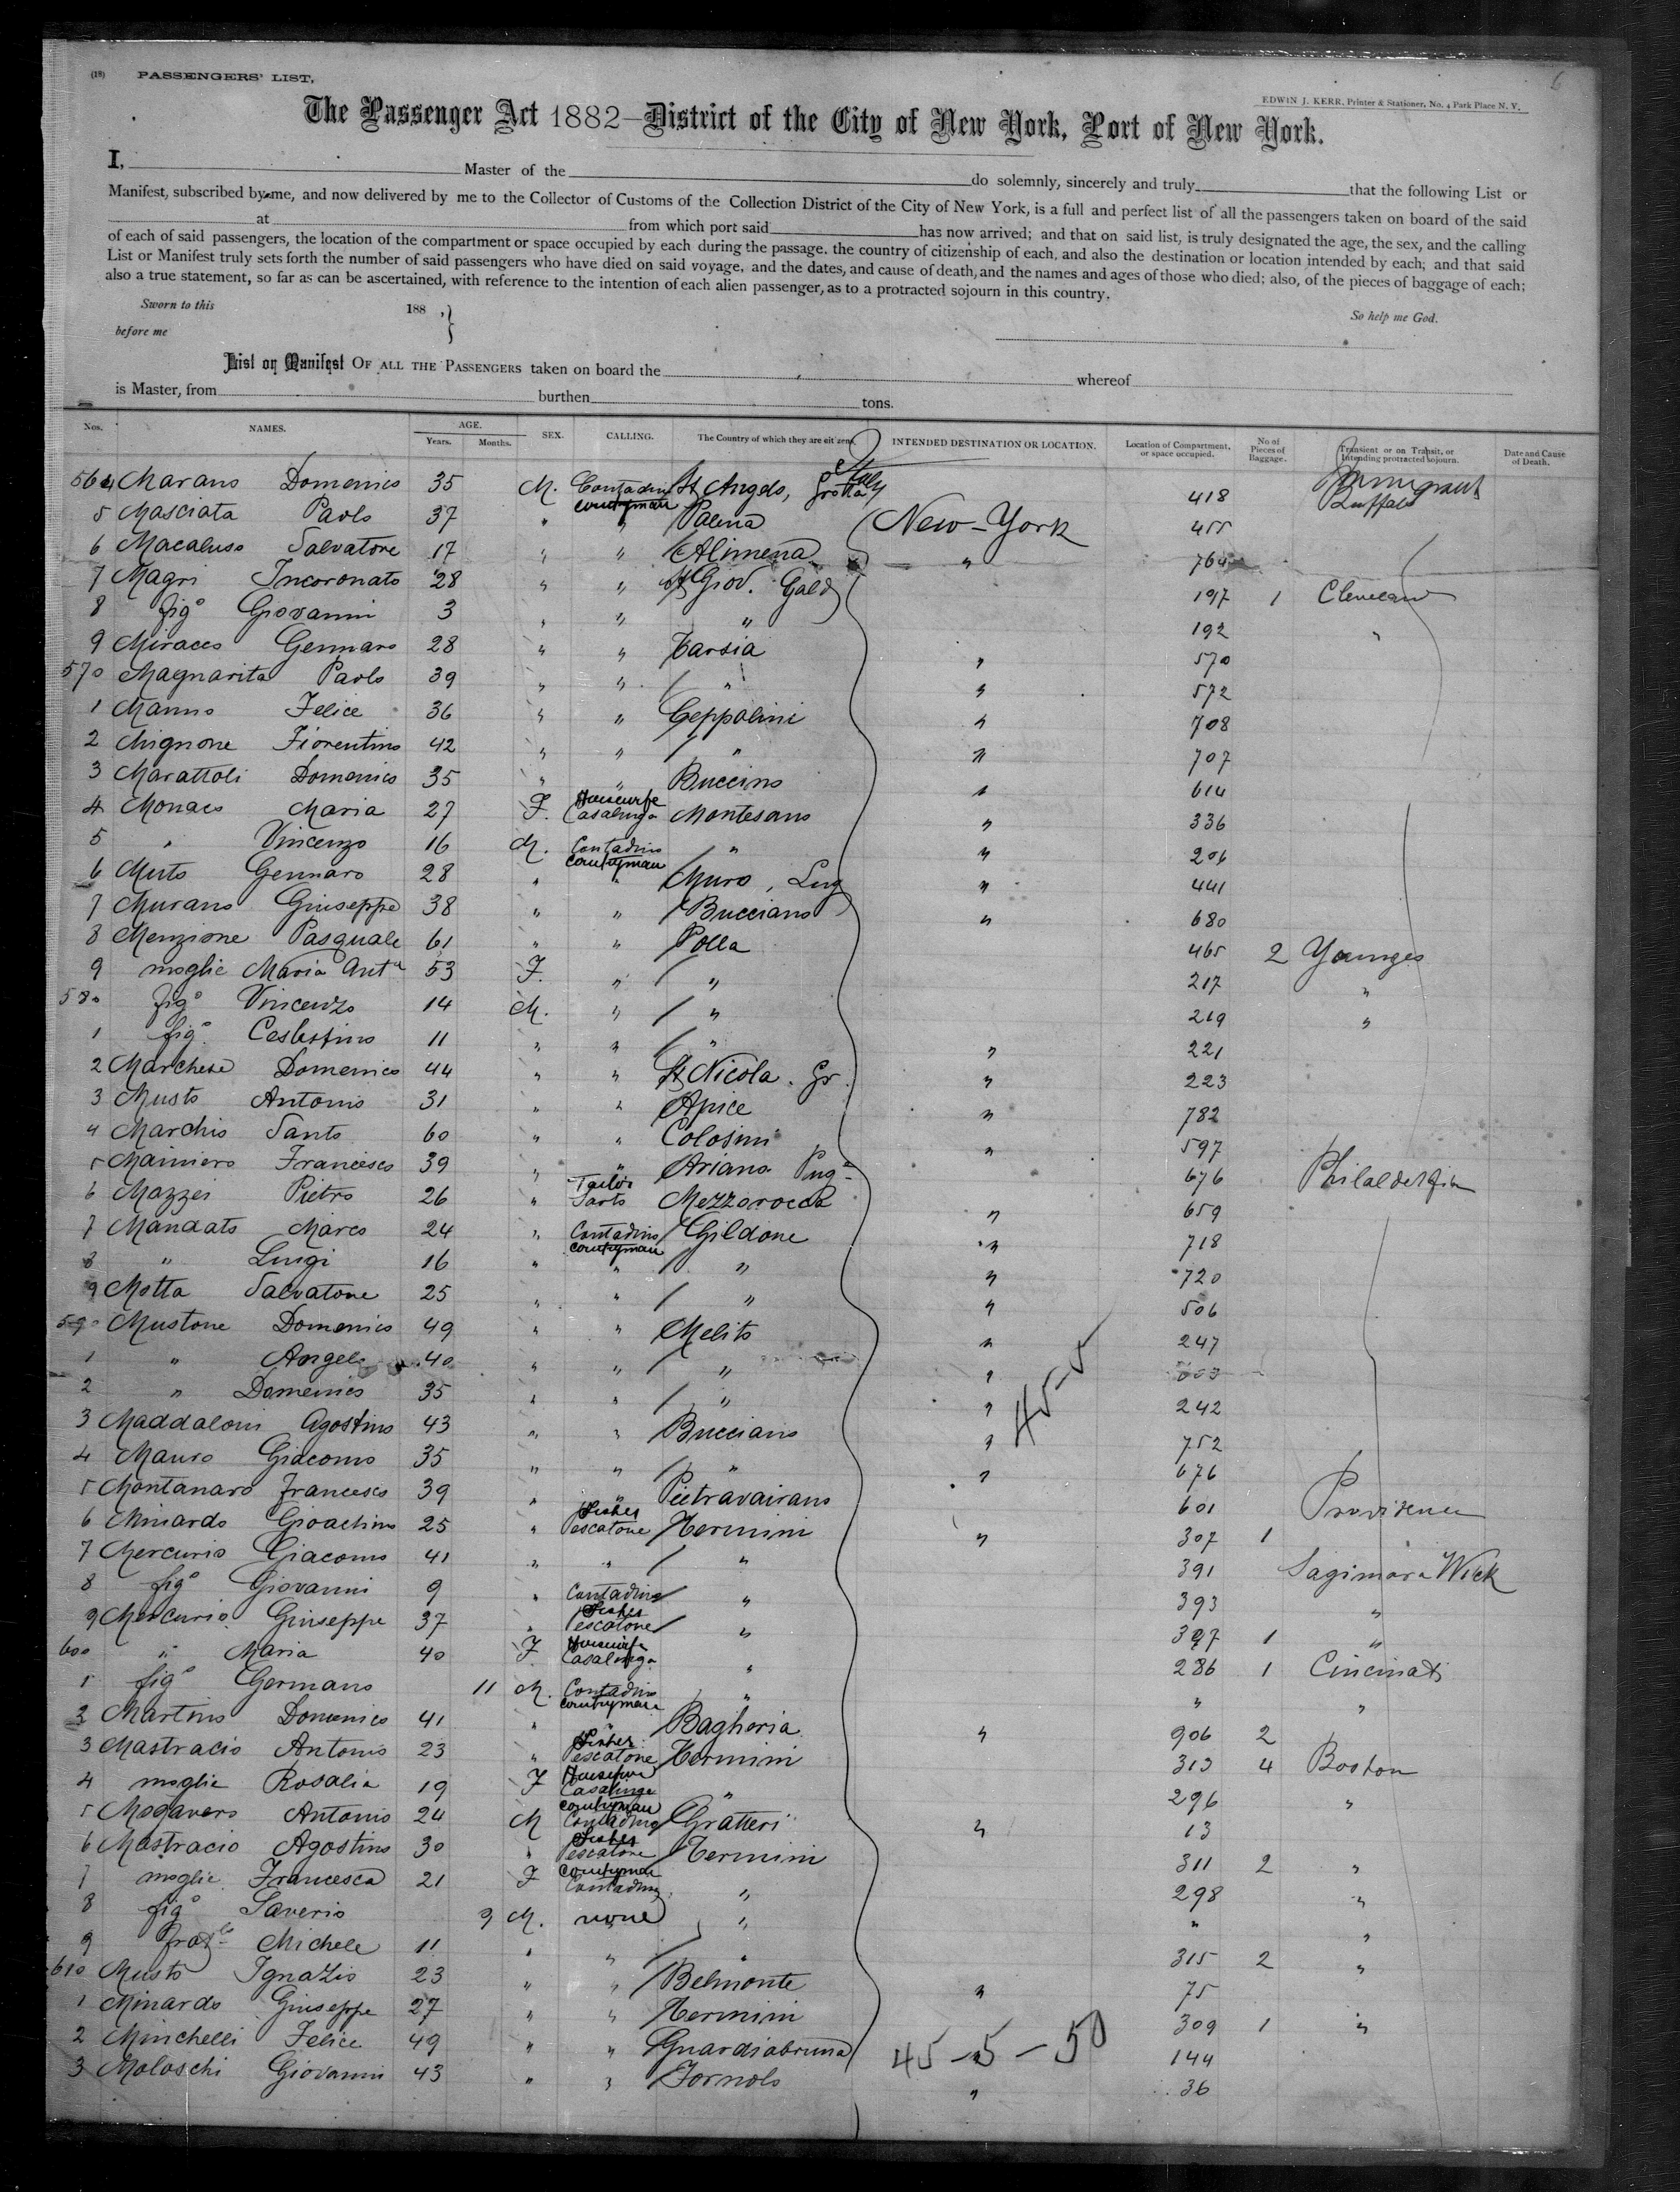 (19) PASSENGERS' LIST,
6
EDWIN J. KERR, Printer & Stationer, No. 4 Park Place N. Y.
The Passenger Act 1882—District of the City of New York, Port of New York.
I, Master of the do solemnly, sincerely and truly that the following List or
Manifest, subscribed by me, and now delivered by me to the Collector of Customs of the Collection District of the City of New York, is a full and perfect list of all the passengers taken on board of the said
at from which port said has now arrived; and that on said list, is truly designated the age, the sex, and the calling
of each of said passengers, the location of the compartment or space occupied by each during the passage, the country of citizenship of each, and also the destination or location intended by each; and that said
List or Manifest truly sets forth the number of said passengers who have died on said voyage, and the dates, and cause of death, and the names and ages of those who died; also, of the pieces of baggage of each;
also a true statement, so far as can be ascertained, with reference to the intention of each alien passenger, as to a protracted sojourn in this country.
Sworn to this 188 , So help me God.
before me
List or Manifest OF ALL THE PASSENGERS taken on board the whereof
is Master, from burthen tons.
Nos. NAMES. AGE. Years. Months. SEX. CALLING. The Country of which they are citizens. INTENDED DESTINATION OR LOCATION. Location of Compartment, or space occupied. No of Pieces of Baggage. Transient or on Transit, or Intending protracted sojourn. Date and Cause of Death.
Italy Immigrant
564 Marano Domenico 35 M. Contadino countryman St Angelo, Grotta 418 Buffalo
5 Masciata Paolo 37 " " Palena New-York 455
6 Macaluso Salvatore 17 " " Alimena " 764
7 Magri Incoronato 28 " " St Giov. Gald 197 1 Cleveland
8 figo Giovanni 3 " " " 192 "
9 Miraco Gennaro 28 " " Tarsia " 570
570 Magnarita Paolo 39 " " " " 572
1 Manno Felice 36 " " Ceppolini " 708
2 Mignone Fiorentino 42 " " " " 707
3 Marattoli Domenico 35 " " Buccino " 614
4 Monaco Maria 27 F. Housewife Casalinga Montesano " 336
5 " Vincenzo 16 M. Contadino countryman " " 206
6 Muto Gennaro 28 " " Muro, Lug " 441
7 Murano Giuseppe 38 " " Bucciano " 680
8 Menzione Pasquale 61 " " Polla 465 2 Younges
9 moglie Maria Anta 53 F. " " 217 "
580 figo Vincenzo 14 M. " " 219 "
1 figo Celestino 11 " " " " 221
2 Marchese Domenico 44 " " St Nicola. Gr. " 223
3 Musto Antonio 31 " " Apice " 782
4 Marchio Santo 60 " " Colosimi " 597
5 Mainiero Francesco 39 " " Ariano Puga 676 Philaldelfia
6 Mazzei Pietro 26 " Tailor Sarto Mezzorocca " 659
7 Mandato Marco 24 " Contadino countryman Gildone " 718
8 " Luigi 16 " " " " 720
9 Motta Salvatore 25 " " " " 506
590 Mustone Domenico 49 " " Melito " 247
1 " Angelo 40 " " " "
2 " Domenico 35 " " " " 242
45-5
3 Maddaloni Agostino 43 " " Bucciano " 752
4 Mauro Giacomo 35 " " " " 676
5 Montanaro Francesco 39 " " Pietravairano 601 Providence
6 Minardo Gioachino 25 " Fisher Pescatore Termini " 307 1
7 Mercurio Giacomo 41 " " " 391 Sagimora Wick
8 figo Giovanni 9 " Contadino " 393 "
9 Mercurio Giuseppe 37 " Fisher Pescatore " 397 1 "
600 " Maria 40 F Housewife Casalinga " 286 1 Cincinati
1 figo Germano 11 M. Contadino countryman " " "
2 Martino Domenico 41 " " Bagheria " 906 2
3 Mastracio Antonio 23 " Fisher Pescatore Termini 313 4 Boston
4 moglie Rosalia 19 F Housewife Casalinga " 296 "
5 Mogavero Antonio 24 M countryman Contadino Gratteri " 13
6 Mastracio Agostino 30 " Fisher Pescatore Termini 311 2 "
7 moglie Francesca 21 F Countryman Contadina " 298 "
8 figo Saverio 9 M. none " " "
9 frat Michele 11 " " " 315 2 "
610 Musto Ignazio 23 " " Belmonte " 75
1 Minardo Giuseppe 27 " " Termini 309 1 "
2 Minchelli Felice 49 " " Guardiabruna 45-5-50 144
3 Moloschi Giovanni 43 " " Fornolo " 36